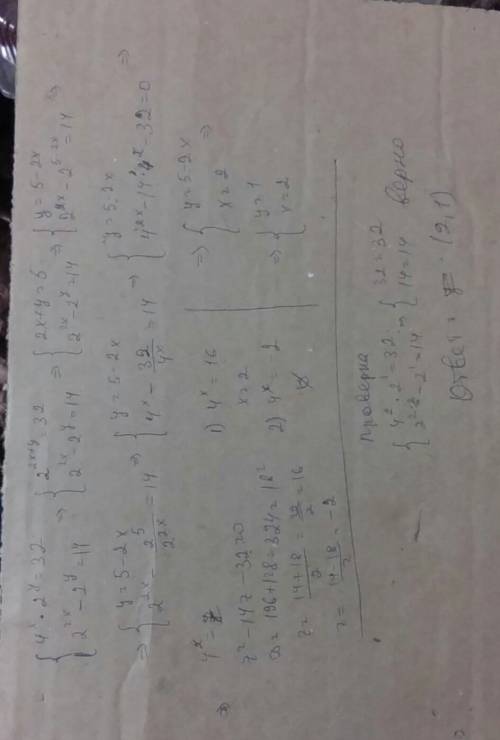 { 4^x · 2^y = 32 ; 2^{2x} - 2^y = 14 => { 2^{2x+y} = 32 ; 2^{2x} - 2^y = 14 => { 2x+y = 5 ; 2^{2x} - 2^y = 14 => { y = 5-2x ; 2^{2x} - 2^{5-2x} = 14 =>
=> { y = 5-2x ; 2^{2x} - 2^5/2^{2x} = 14 => { y = 5-2x ; 4^x - 32/4^x = 14 => { y = 5-2x ; 4^{2x} - 14·4^x - 32 = 0 =>
=> 4^x = z
z² - 14z - 32 = 0
D = 196 + 128 = 324 = 18²
z = (14+18)/2 = 32/2 = 16
z = (14-18)/2 = -2
1) 4^x = 16
x = 2
2) 4^x = -2
∅
=> { y = 5-2x ; x = 2 =>
=> { y = 1 ; x = 2
Проверка
{ 4² · 2¹ = 32 ; 2^{2·2} - 2¹ = 14 => { 32 = 32 ; 14 = 14 Верно
Ответ: (2,1)